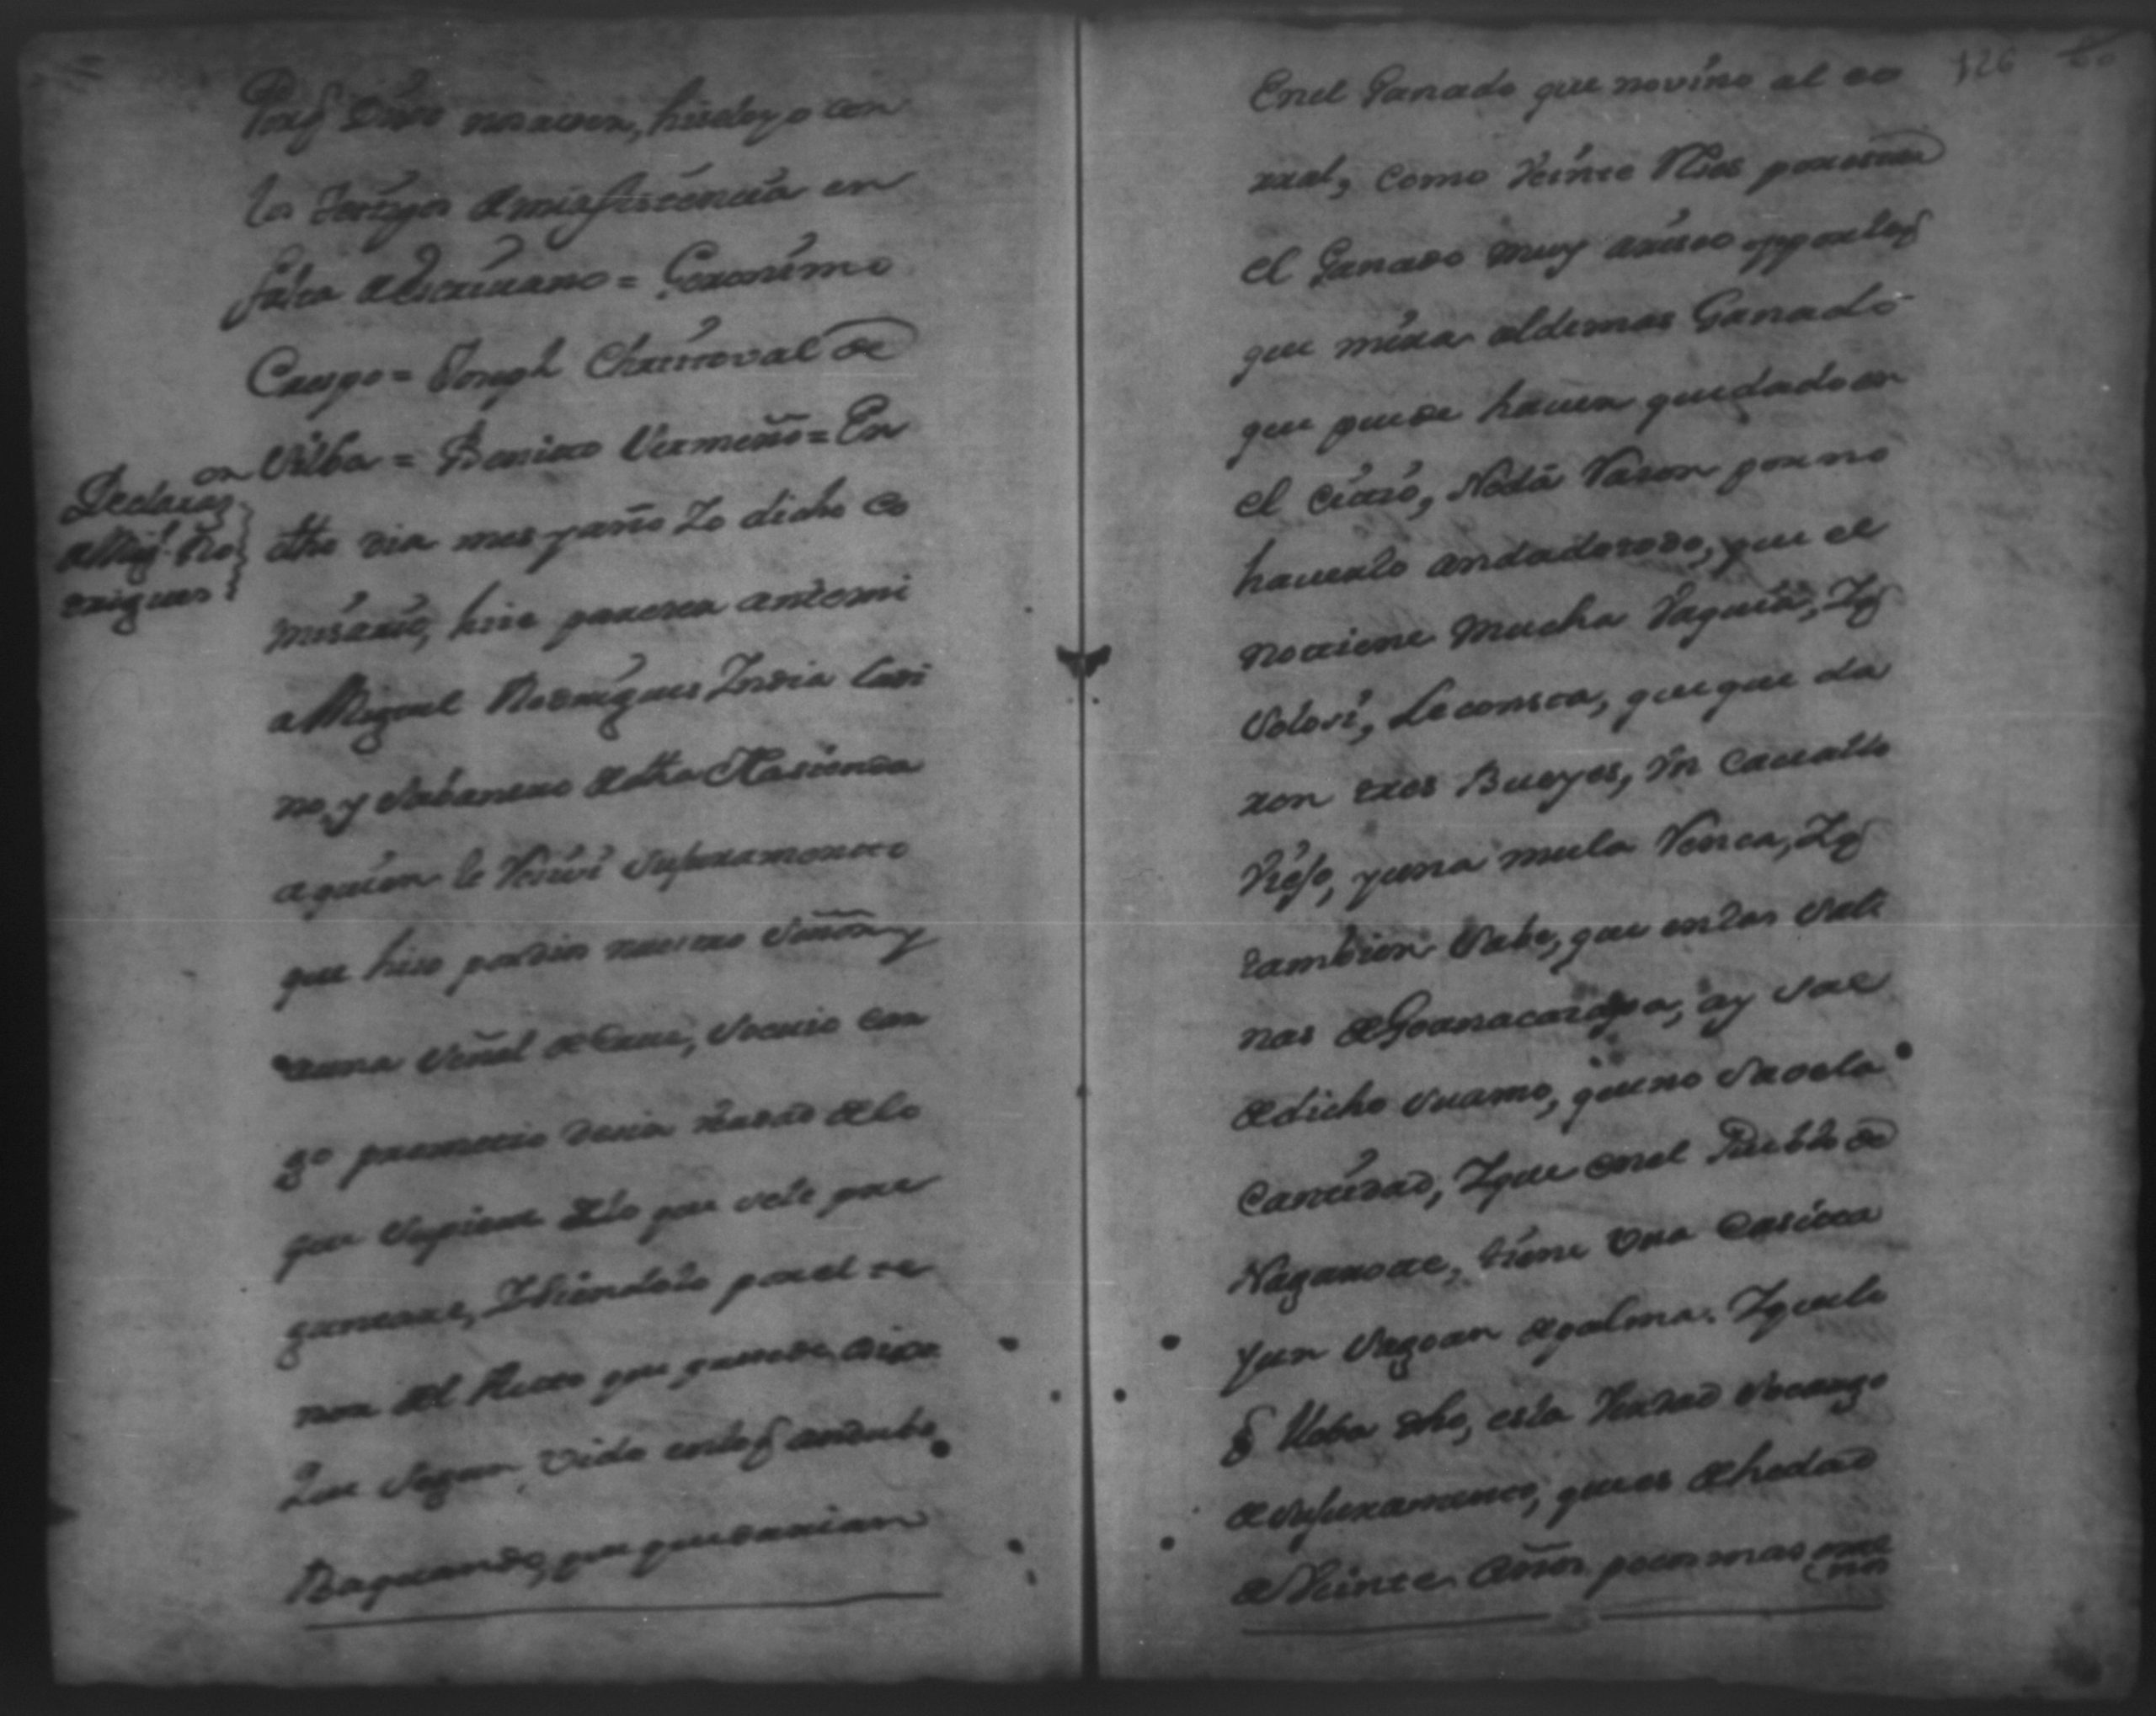 Porq̃ Dixo no saver, hicelo yo con
los testigos de mi asistencia en
falta de escrivano = Geronimo
Crespo = Joseph Christoval de
Vilba = Benito Vermeño = En
Declaraz.on
de Mig.l Ro
drigues
dho dia mes y año Yo dicho Co
misario, hise pareser ante mi
a Miguel Rodrigues Indio ladi
no, y Sabanero de dha Hasienda
a quien le Reciví Juframento
que hiso por Dios nuestro Señor y
una Señal de Cruz, so cuio car
go prometio desir verdad de lo
que supiere de lo que sele pre
guntare, y siendolo por el te
nor del Auto que presede, dixo
Que Segun vido en lo q̃ andubo
Baqueando, que quedarian
126
En el Ganado que no vino al co
rral, como veinte Reses por estar
el Ganado muy arisco y por lo q̃
que mira al demas Ganado
que puede haver quedado en
el citio, No dá Rason por no
haverlo andado todo, que el
no tiene mucha Yeguería, Y q̃
Solo si, le consta, que que da
ron tres Bueyes, Un Cavallo
Viejo, y una mula Renca, Y q̃
tambien Sabe, que en las Sali
nas de Goanacastpa, ay Sal
de dicho su amo, que no Save la
Cantidad, Y que en el Pueblo de
Nagarote, tiene Una Casitta
y un Sagoan de palma. Y que lo
q̃ lleba dho, es la Verdad So cargo
de su Juframento, que es de hedad
de Veinte años poco mas o me
nos